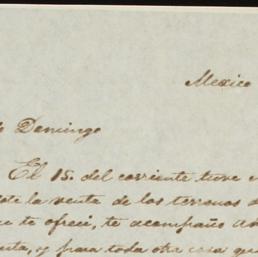 Mexico
Domingo
El 15. del corriente tuve
la venta de los terrenos
te ofrecí, te acompaño
y para toda otra cosa